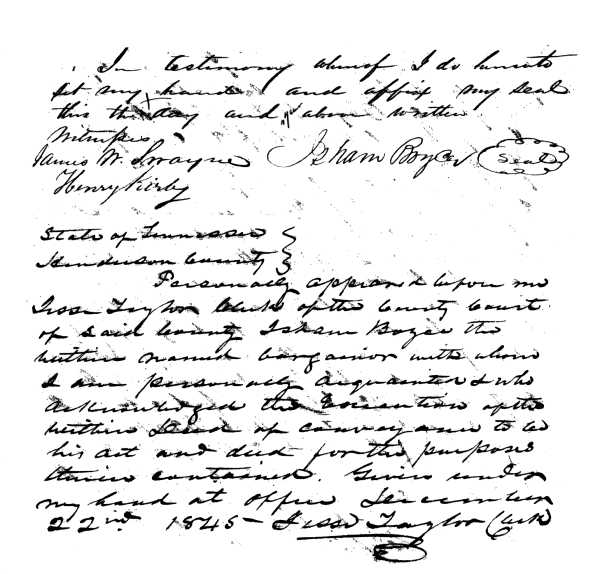 In testimony whereof I do hereunto
set my hand and affix my seal
this the day and year above written
Witness
James W. Swayne Isham Boyce Seal
Henry Kirby
State of Tennessee
Henderson County
Personally appeared before me
Jesse Taylor Clerk of the County Court
of said County Isham Boyce the
within named bargainor with whom
I am personally acquainted & who
acknowledged the Execution of the
within Deed of conveyance to be
his act and deed for the purposes
therein contained. Given under
my hand at office December
22nd 1845 - Jesse Taylor Clerk